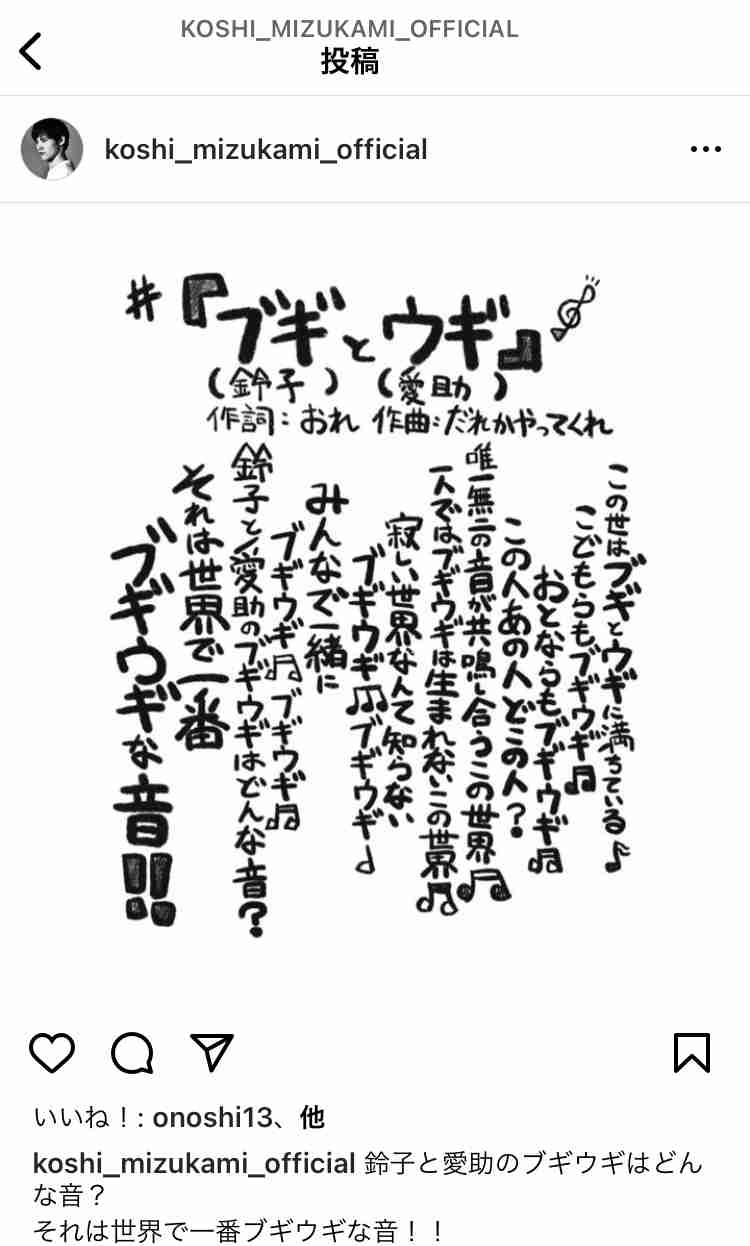 KOSHI_MIZUKAMI_OFFICIAL
投稿
koshi_mizukami_official
#『ブギとウギ』
(鈴子) (愛助)
作詞:おれ 作曲:だれかやってくれ
この世はブギとウギに満ちている♪
こどもらもブギウギ♫
おとならもブギウギ♫
この人あの人どこの人?
唯一無二の音が共鳴し合うこの世界♫
一人ではブギウギは生まれないこの世界♫
寂しい世界なんて知らない
ブギウギ♫ブギウギ♩
みんなで一緒に
ブギウギ♫ブギウギ♫
鈴子と愛助のブギウギはどんな音?
それは世界で一番
ブギウギな音!!
いいね!: onoshi13、他
koshi_mizukami_official 鈴子と愛助のブギウギはどん
な音?
それは世界で一番ブギウギな音!!